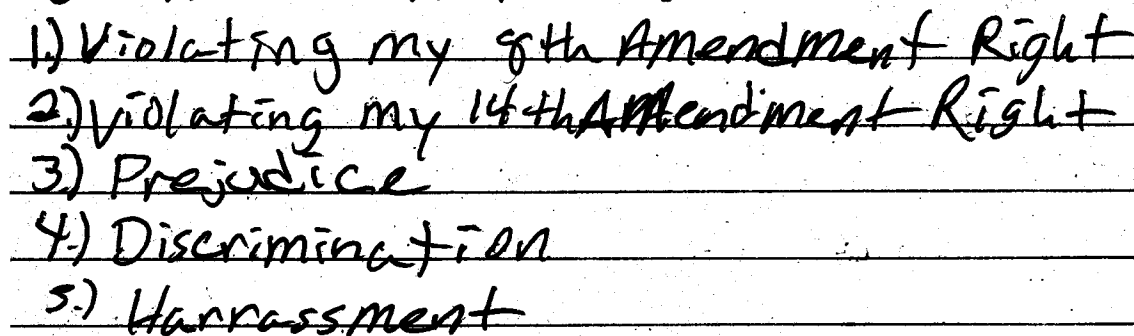 1.) Violating my 8th Amendment Right
2.) Violating my 14th Amendment Right
3.) Prejudice
4.) Discrimination
5.) Harrassment